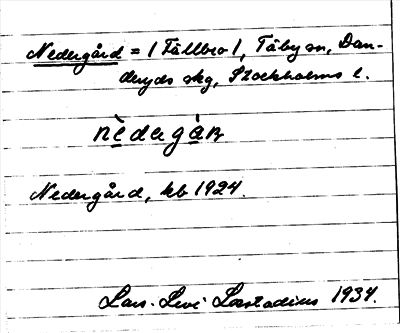 Nedergård = / Fållbro /, Täby sn, Dan-
deryds skg, Stockholms l.
nèdagàṇ
Nedergård, kb 1924.
Lars-Levi Læstadius 1934.